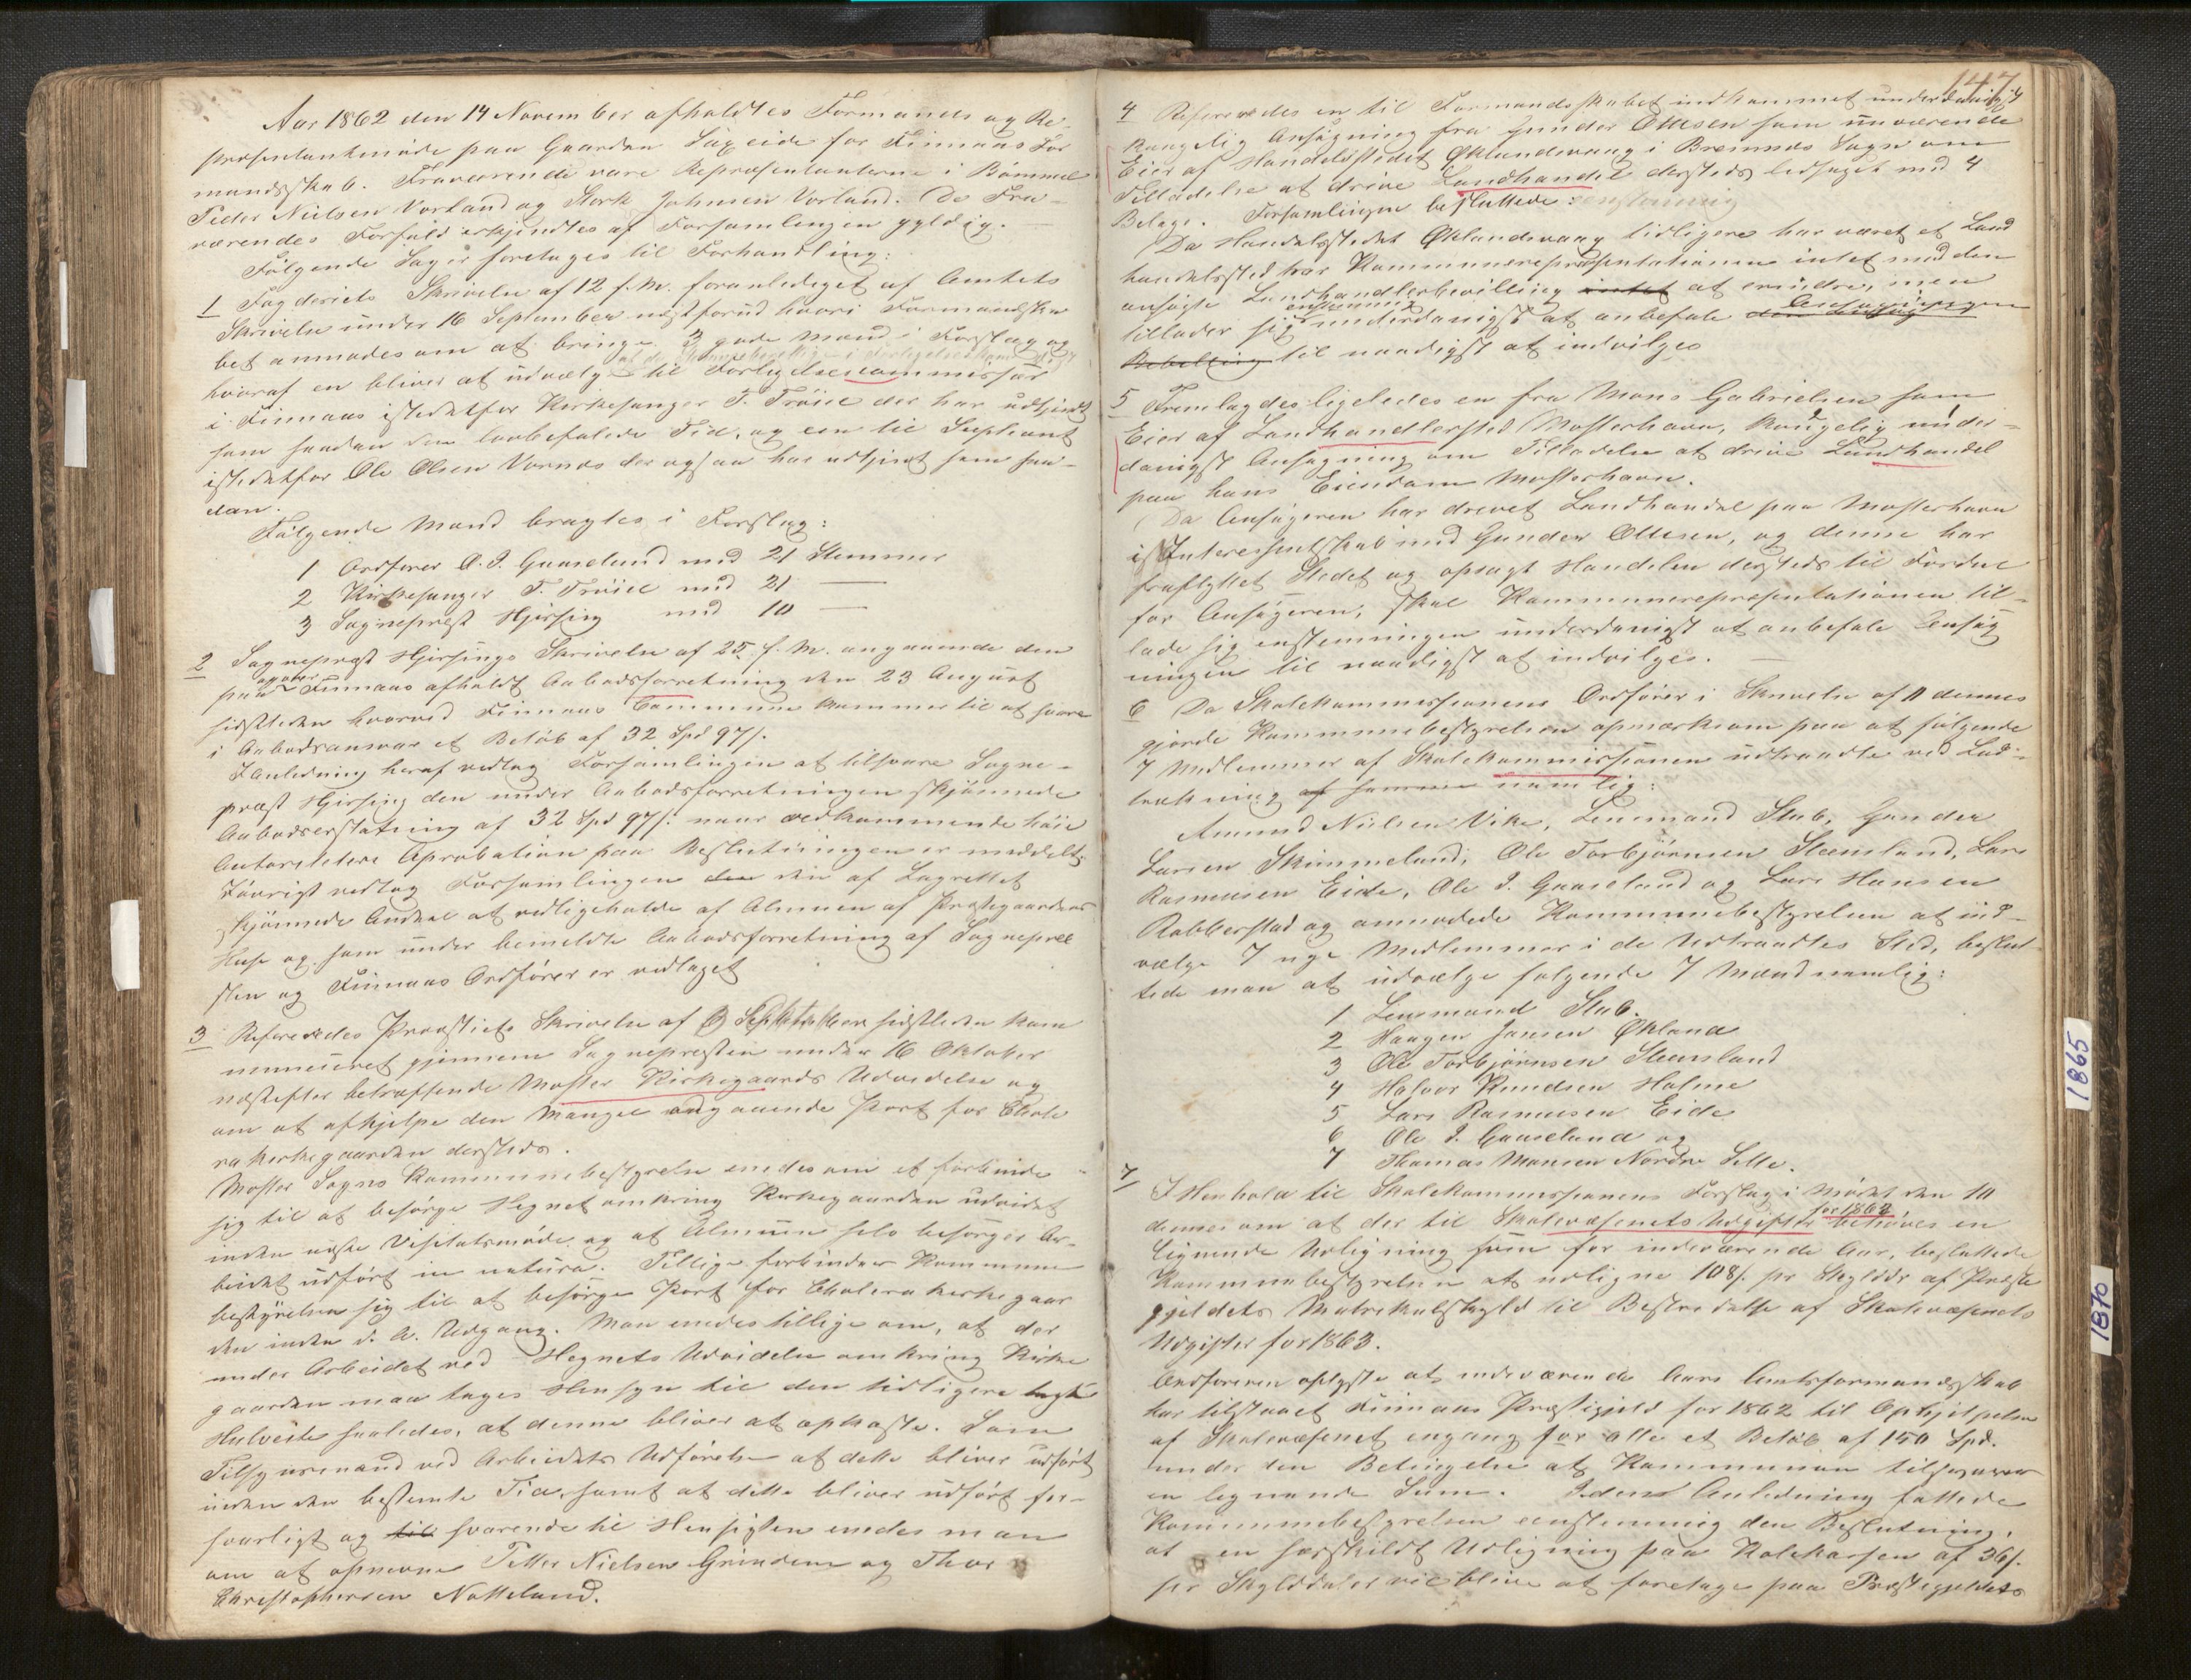 Aar 1862 den 14 November afholdtes Formands og Re-
præsentantmøde paa Gaarden Søgeide for Finnaas For
mandsskab. Fraværende vare Repræsentanterne i Bømmel
Peder Nielsen Vorland og Stork Johnsen Vorland. De Fra-
værendes Forfald erkjendtes af Forsamlingen gyldig.
Følgende Sager foretages til Forhandling:
1 Fogderiets Skrivelse af 12 f. M. foranlediget af Amtets
Skrivelse under 16 September næstforud hvori Formandska
bet anmodes om at bringe 3 gode Mænd i Forslag og
hvoraf en bliver at udvælge til Forligelsescommissær
i Finnaas istedetfor Kirkesanger T. Trøiel der har udtjent
som saadan den lovbefalede Tid, og een til Supleant
istedetfor Ole Olsen Vornæs der ogsaa har udtjent som saa-
dan.
Følgende Mænd bragtes i Forslag:
1 Ordfører O. J. Gaaseland med 21 Stemmer
2 Kirkesanger T. Trøiel med 21 —
3 Sogneprest Hjorsing med 10 —
2 Sogneprest Hjorsings Skrivelse af 25 f. M. angaaende den
paa Finnaas afholdt Aabodsforretning den 23 August
sidstleden hvorved Finnaas Commune kommer til at svare
i Aabodsansvar et Beløb af 32 Spd 97 s.
I Anledning heraf vedtog Forsamlingen at tilsvare Sogne-
præst Hjorsing den under Aabodsforretningen skjønnede
Aabodserstatning af 32 Spd 97 s. naar vedkommende høie
Autoriteters Aprobation paa Beslutningen er meddelt.
Iøvrigt vedtog Forsamlingen den den af Lagrettet
skjønnede Andeel at vedligeholde af Almuen af Præstegaardens
Huse og som under bemeldte Aabodsforretning af Sognepræ
sten og Finnaas Ordfører er vedtaget
3 Refereredes Provstiets Skrivelse af 3 September sidstleden kom
muniseret gjennem Sognepresten under 16 Oktober
næstefter betræffende Moster Kirkegaards Udvidelse og
om at afhjelpe den Mangel angaaende Port for Chole
rakirkegaarden dersteds.
Moster Sogns Kommunebestyrelse enedes om at forbinde
sig til at besørge Hegnet omkring Kirkegaarden udvidet
inden næste Visitatsmøde og at Almuen selv besørger Ar-
beidet udført in natura. Tillige forbinder Kommune
bestyrelsen sig til at besørge Port for Cholerakirkegaar
den inden d. A. Udgang. Man enedes tillige om, at der
under Arbeidet ved Hegnets Udvidelse omkring Kirke
gaarden maa tages Hensyn til den tidligere lagte
Hulveite saaledes, at denne bliver at opkaste. Som
Tilsynsmænd ved Arbeidets Udførelse at dette bliver udført
inden den bestemte Tid, samt at dette bliver udført for-
svarligt og til svarende til Hensigten enedes man
om at opnævne Peder Nielsen Grindem og Thor
Christophersen Notteland.
147
4 Refereredes en til Formandsskabet indkommet underdanigst
kongelig Ansøgning fra Gunder Ottesen som nuværende
Eier af Handelsstedet Øklandsvaag i Bremnæs Sogn om
Tilladelse at drive Landhandel dersteds ledsaget med 4
Bilage. Forsamlingen besluttede:
Da Handelsstedet Øklandsvaag tidligere har været et Land
handelssted har Kommunerepræsentationen intet mod den
ansøgte Landhandlerbevilling intet at erindre, men
tillader sig enstemmig underdanigst at anbefale den Ansøgningen
til naadigst at indvilges
5 Fremlagdes ligeledes en fra Mons Gabrielsen som
Eier af Landhandlersted Mosterhavn, kongelig under-
danigst Ansøgning om Tilladelse at drive Landhandel
paa hans Eiendom Mosterhavn.
Da Ansøgeren har drevet Landhandel paa Mosterhavn
i Interesentskab med Gunder Ottesen, og denne har
fraflyttet Stedet og opsagt Handelen dersteds til Fordel
for Ansøgeren, skal Kommunerepræsentationen til-
lade sig enstemmigen underdanigst at anbefale Ansøg
ningen til naadigst at indvilges.
6 Da Skolekommissionens Ordfører i Skrivelse af 11 dennes
gjorde Kommunebestyrelsen opmærksom paa at følgende
7 Medlemmer af Skolekommissionen udtraadte ved Lod-
trækning af samme nemlig:
Amund Nielsen Vike, Lensmand Stub, Gunder
Larsen Skimmeland, Ole Torbjørnsen Steensland, Lars
Rasmusen Eide, Ole J. Gaaseland og Lars Hansen
Robberstad og anmodede Kommunebestyrelsen at ud-
vælge 7 nye Medlemmer i de Udtraadtes Sted, beslut-
tede man at udvælge følgende 7 Mænd nemlig:
1 Lensmand Stub.
2 Haagen Jansen Økland
3 Ole Torbjørnsen Steensland
4 Halvor Knudsen Holme
5 Lars Rasmusen Eide
6 Ole J. Gaaseland og
7 Thomas Monsen Nordre Sille.
7 I Henhold til Skolekommissionens Forslag i Mødet den 10
dennes om at der til Skolevæsenets Udgifter for 1863 behøves en
lignende Udligning som for indeværende Aar, besluttede
Kommunebestyrelsen at udligne 108 s. pr Skylddr af Præste
gjeldets Matrikulskyld til Bestridelse af Skolevæsenets
Udgifter for 1863.
Ordføreren oplyste at indeværende Aars Amtsformandsskab
har tilstaaet Finnaas Præstegjeld for 1862 til Ophjelpelse
af Skolevæsenet engang for alle et Beløb af 150 Spd.
under den Betingelse at Kommunen tilsvarer
en lignende Sum. I den Anledning fattede
Kommunebestyrelsen eenstemmig den Beslutning,
at en særskildt Udligning paa Skolekassen af 36 s.
pr Skylddaler vil blive at foretage paa Præstegjeldets
1865
1870